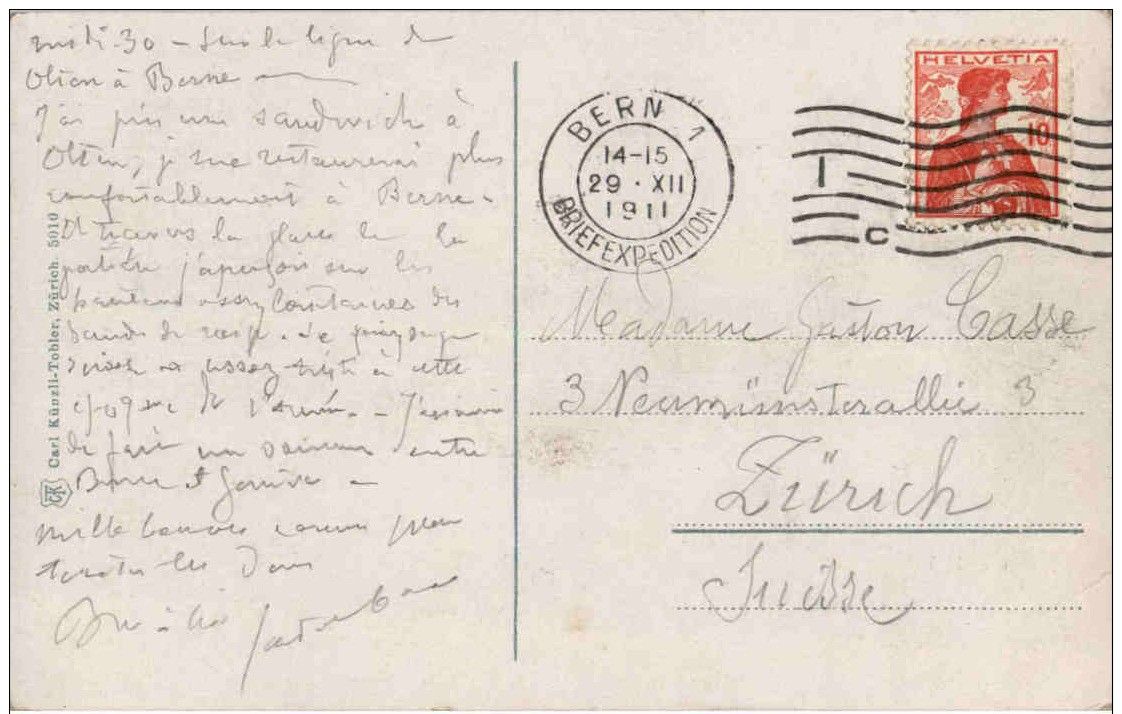 midi-30 - Sur la ligne de
Olten à Berne
J'ai pris une sandwich à
Olten, je me restaurerai plus
confortablement à Berne.
A travers la glace de la
j'aperçois sur les
hauteurs assez lointaines des
Le paysage
suisse est assez triste à cette
époque de l'année. -
de faire un somme entre
Berne et Genève -
mille bonnes pour
toutes les deux
Carl Künzli-Tobler, Zürich. 5010
BERN 1
14-15
29 · XII
1911
BRIEFEXPEDITION
HELVETIA
10
Madame Gaston Casse
3 Neumünsterallée 3
Zürich
Suisse